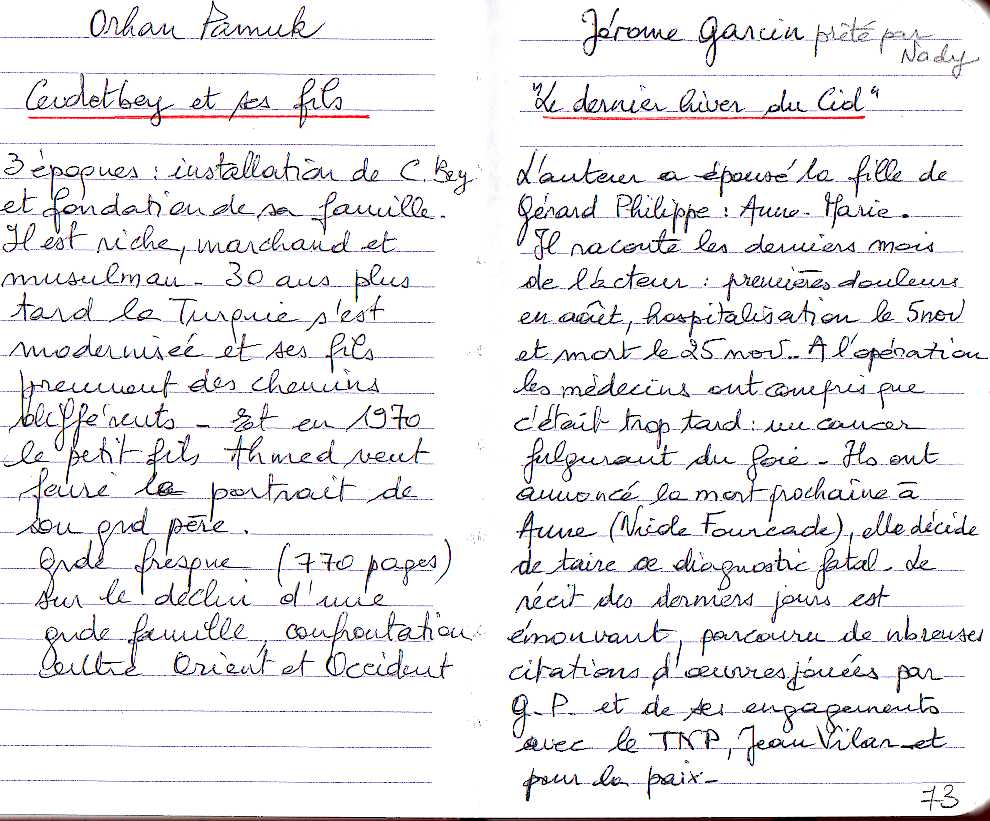 Orhan Pamuk
Cevdetbey et ses fils
3 époques : installation de C. Bey
et fondation de sa famille.
Il est riche, marchand et
musulman - 30 ans plus
tard la Turquie s'est
modernisée et ses fils
prennent des chemins
différents - Et en 1970
le petit fils Ahmed veut
faire le portrait de
son grd père.
Grde fresque (770 pages)
sur le déclin d'une
grde famille, confrontation
entre Orient et Occident
Jérome Garcin prêté par
Nady
"Le dernier hiver du Cid"
L'auteur a épousé la fille de
Gérard Philippe : Anne-Marie.
Il raconte les derniers mois
de l'acteur : premières douleurs
en août, hospitalisation le 5 nov
et mort le 25 nov - A l'opération
les médecins ont compris que
c'était trop tard : un cancer
fulgurant du foie - Ils ont
annoncé la mort prochaine à
Anne (Nicole Fourcade), elle décide
de taire ce diagnostic fatal. Le
récit des derniers jours est
émouvant, parcouru de nbreuses
citations d'œuvres jouées par
G.P. et de ses engagements
avec le TNP, Jean Vilar et
pour la paix -
73